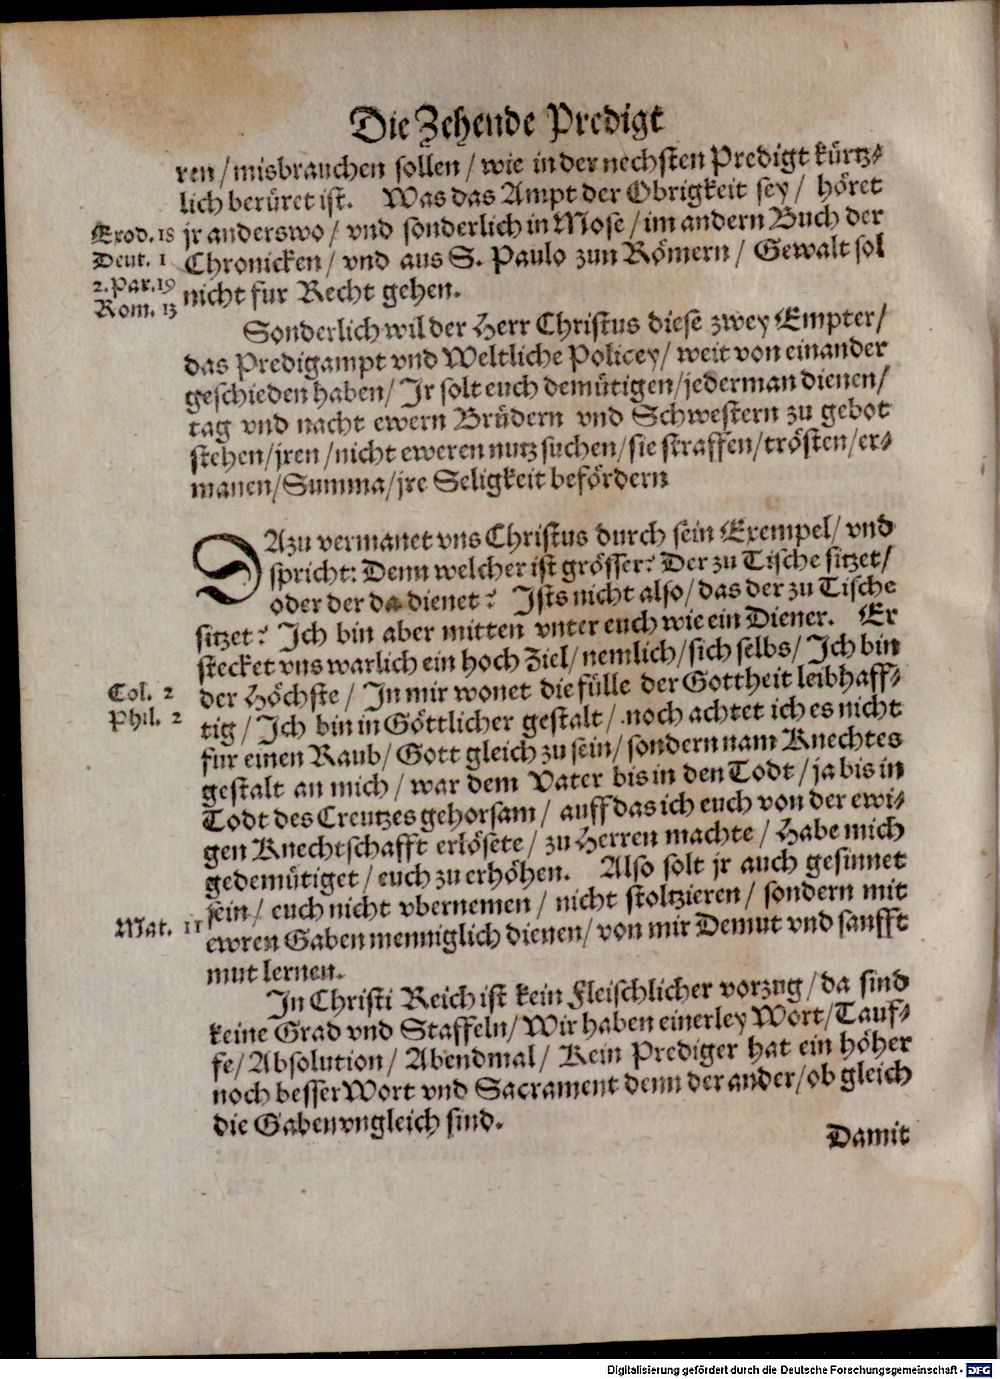 Die Zehende Predigt
ren / misbrauchen sollen / wie in der nechsten Predigt kürtz-
lich berüret ist. Was das Ampt der Obrigkeit sey / höret
Exod. 18 jr anderswo / vnd sonderlich in Mose / im andern Buch der
Deut. 1 Chronicken / vnd aus S. Paulo zun Römern / Gewalt sol
2. Par. 19
nicht fur Recht gehen.
Rom. 13
Sonderlich wil der Herr Christus diese zwey Empter /
das Predigampt vnd Weltliche Policey / weit von einander
geschieden haben / Jr solt euch demütigen / jederman dienen /
tag vnd nacht ewern Brüdern vnd Schwestern zu gebot
stehen / jren / nicht eweren nutz suchen / sie straffen / trösten / er-
manen / Summa / jre Seligkeit befördern
DAzu vermanet vns Christus durch sein Exempel / vnd
spricht: Denn welcher ist grösser? Der zu Tische sitzet /
oder der da dienet? Ists nicht also / das der zu Tische
sitzet? Ich bin aber mitten vnter euch wie ein Diener. Er
stecket vns warlich ein hoch Ziel / nemlich / sich selbs / Ich bin
Col. 2 der Höchste / In mir wonet die fülle der Gottheit leibhaff-
Phil. 2 tig / Ich bin in Göttlicher gestalt / noch achtet ich es nicht
fur einen Raub / Gott gleich zu sein / sondern nam Knechtes
gestalt an mich / war dem Vater bis in den Todt / ja bis in
Todt des Creutzes gehorsam / auff das ich euch von der ewi-
gen Knechtschafft erlösete / zu Herren machte / Habe mich
gedemütiget / euch zu erhöhen. Also solt jr auch gesinnet
sein / euch nicht vbernemen / nicht stoltzieren / sondern mit
Mat. 11 ewren Gaben menniglich dienen / von mir Demut vnd sanfft
mut lernen.
In Christi Reich ist kein Fleischlicher vorzug / da sind
keine Grad vnd Staffeln / Wir haben einerley Wort / Tauf-
fe / Absolution / Abendmal / Kein Prediger hat ein höher
noch besser Wort vnd Sacrament denn der ander / ob gleich
die Gaben vngleich sind.
Damit
Digitalisierung gefördert durch die Deutsche Forschungsgemeinschaft - DFG